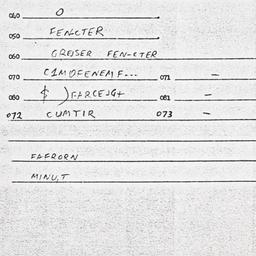 040 O
050 FENCTER
060 GROSER FEN-CTER
070 C1MDFENEMF... 071 –
080 $ )FARCEJG+ 081 –
072 CUMTIR 073 –
FAFRORN
MINU,T